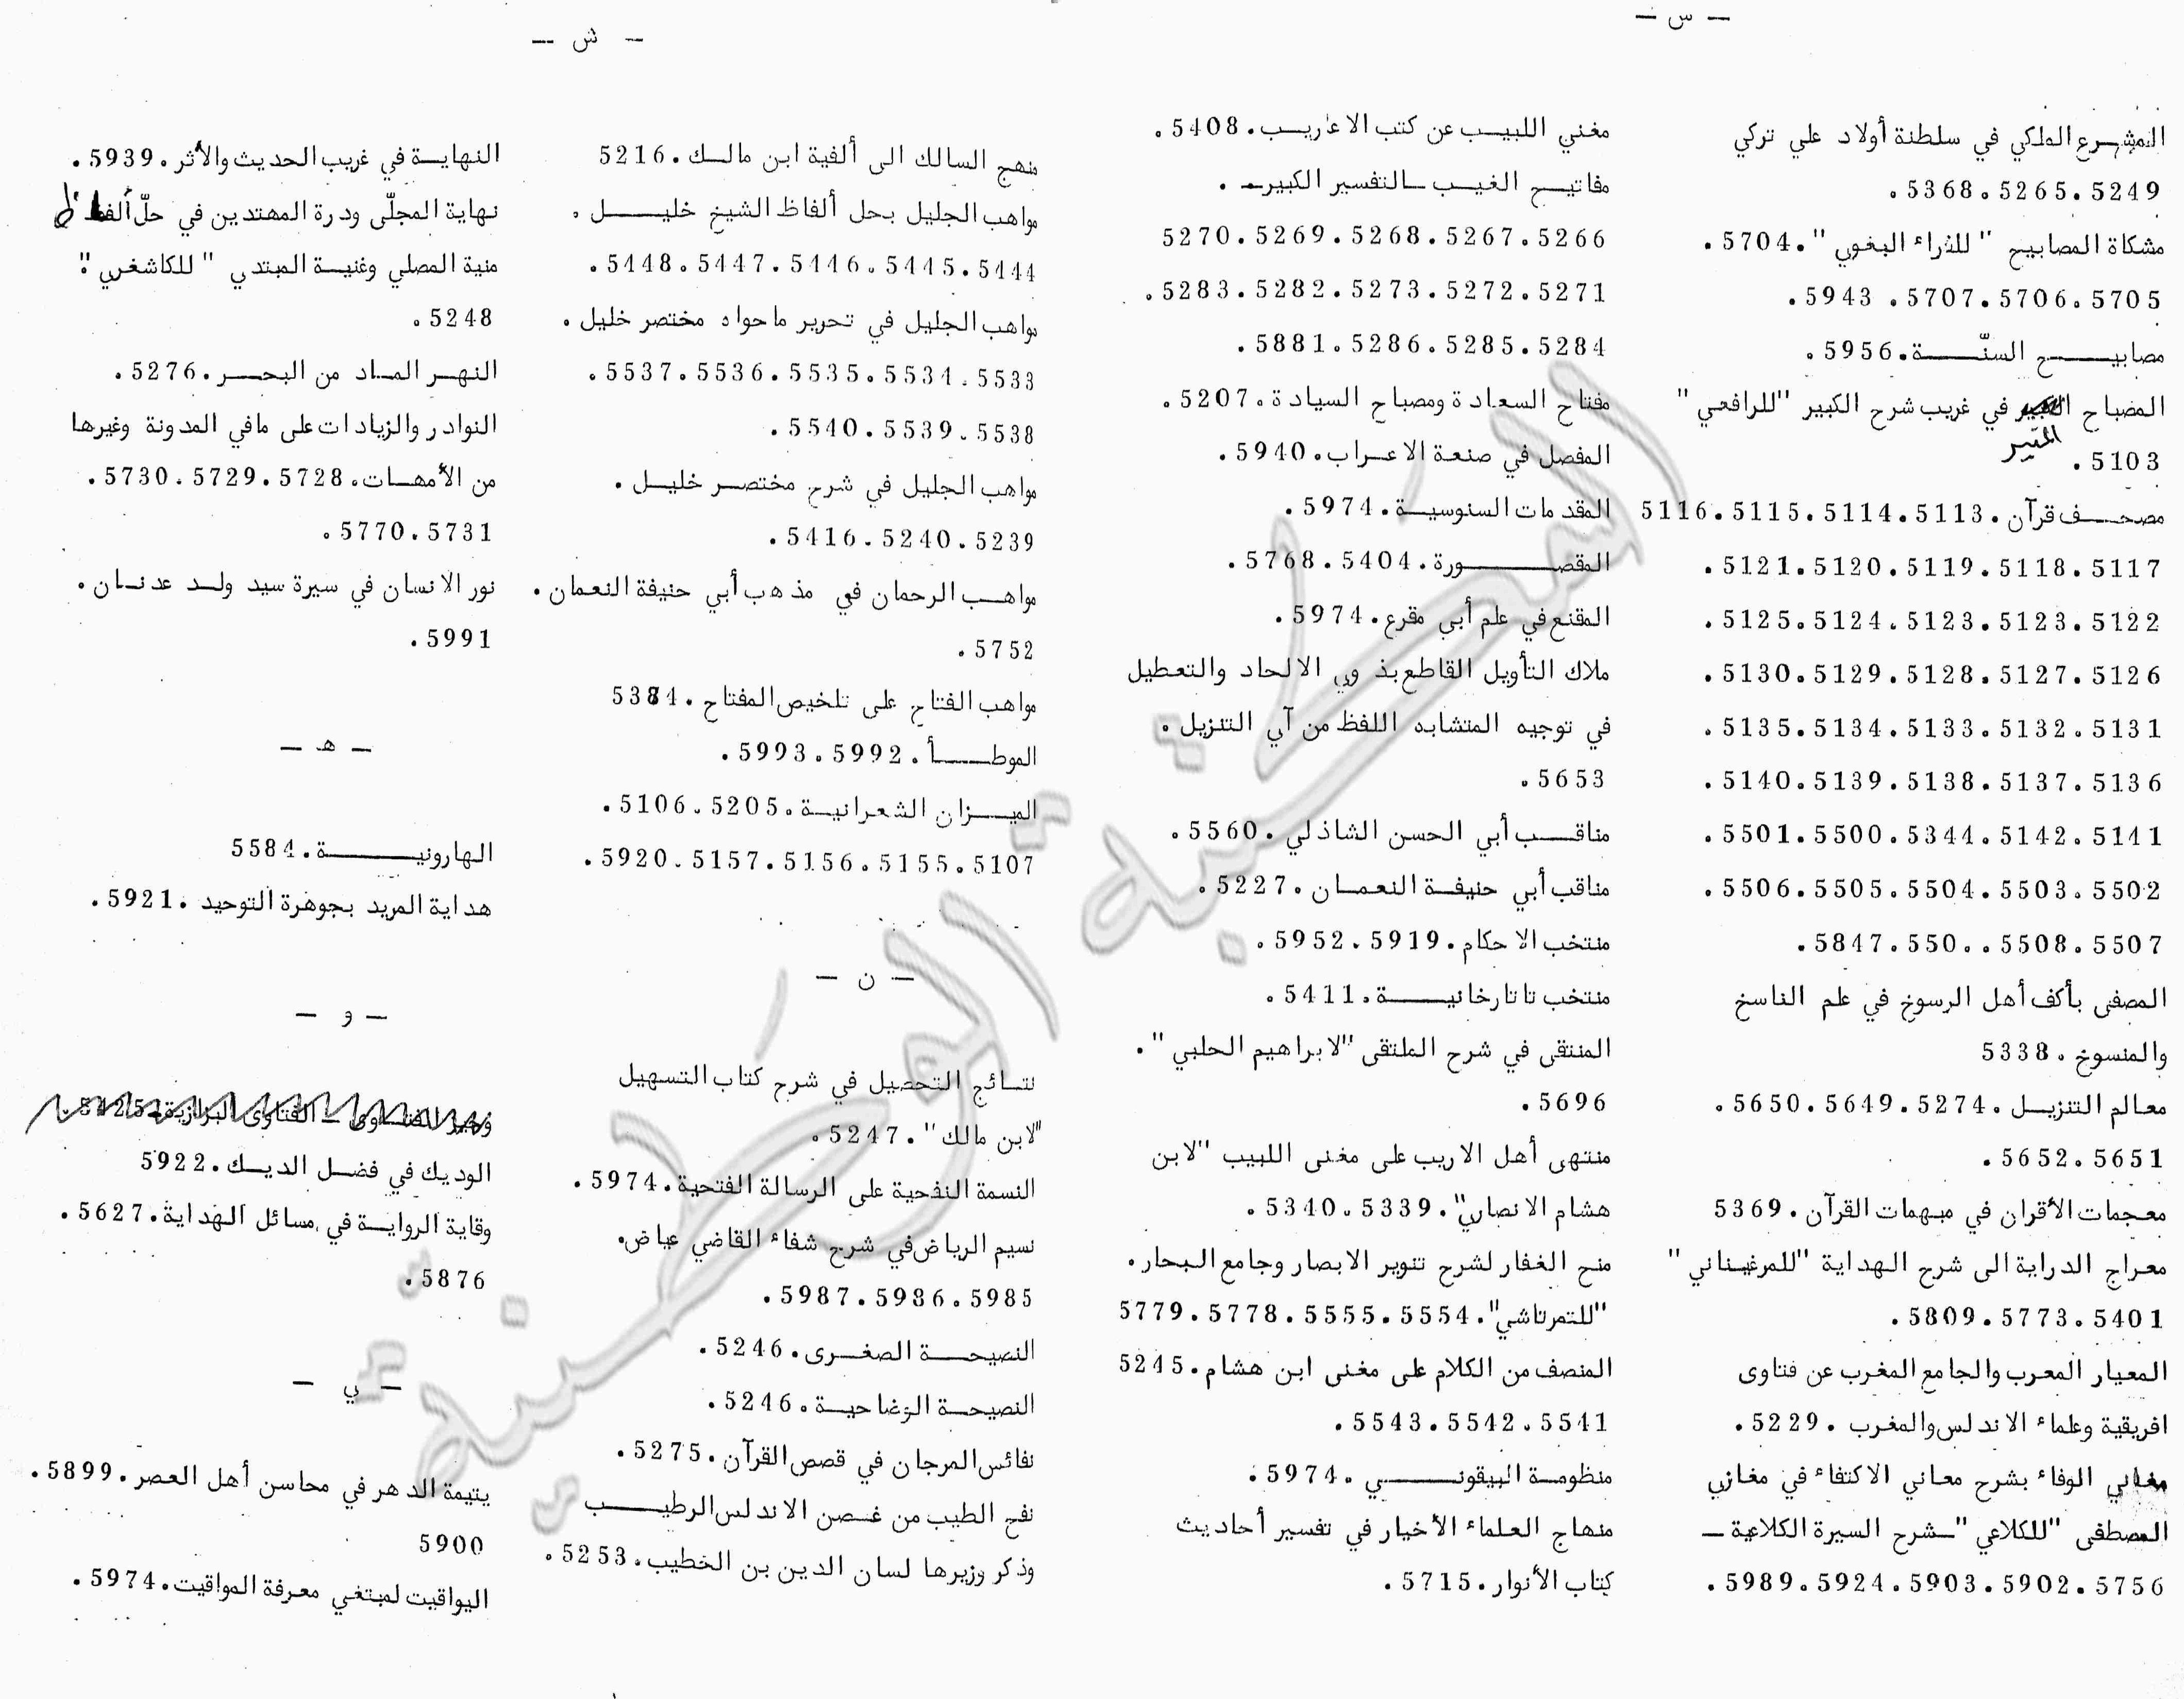 - س -
المشرع الملكي في سلطنة أولاد علي تركي
5249 .5265 .5368.
مشكاة المصابيح " للفراء البغوي ". 5704.
5705 .5706 .5707. 5943.
مصابيح السنّة. 5956.
المصباح المنير في غريب شرح الكبير "للرافعي"
5103.
مصحف قرآن. 5113 .5114 .5115 .5116
5117 .5118 .5119 .5120 .5121.
5122 .5123 .5123 .5124 .5125.
5126 .5127 .5128 .5129 .5130.
5131 .5132 .5133 .5134 .5135.
5136 .5137 .5138 .5139 .5140.
5141 .5142 .5344 .5500 .5501.
5502 .5503 .5504 .5505 .5506.
5507 .5508 . .550 .5847.
المصفى بأكف أهل الرسوخ في علم الناسخ
والمنسوخ. 5338
معالم التنزيل. 5274 .5649 .5650.
5651 .5652.
معجمات الأقران في مبهمات القرآن. 5369
معراج الدراية الى شرح الهداية "للمرغيناني"
5401 .5773 .5809.
المعيار المعرب والجامع المغرب عن فتاوى
افريقية وعلماء الاندلس والمغرب. 5229.
مغاني الوفاء بشرح معاني الاكتفاء في مغازي
المصطفى "للكلاعي" - شرح السيرة الكلاعية -
5756 .5902 .5903 .5924 .5989.
مغني اللبيب عن كتب الاعاريب. 5408.
مفاتيح الغيب - التفسير الكبير - .
5266 .5267 .5268 .5269 .5270
5271 .5272 .5273 .5282 .5283.
5284 .5285 .5286 .5881.
مفتاح السعادة ومصباح السيادة. 5207.
المفصل في صنعة الاعراب. 5940.
المقدمات السنوسية. 5974.
المقصورة. 5404 .5768.
المقنع في علم أبي مقرع. 5974.
ملاك التأويل القاطع بذوي الالحاد والتعطيل
في توجيه المتشابه اللفظ من آي التنزيل.
5653.
مناقب أبي الحسن الشاذلي. 5560.
مناقب أبي حنيفة النعمان. 5227.
منتخب الاحكام. 5919 .5952.
منتخب تاتارخانية. 5411.
المنتقى في شرح الملتقى "لابراهيم الحلبي".
5696.
منتهى أهل الاريب على مغنى اللبيب "لابن
هشام الانصاري". 5339 .5340.
منح الغفار لشرح تنوير الابصار وجامع البحار.
"للتمرتاشي". 5554 .5555 .5778 .5779
المنصف من الكلام على مغنى ابن هشام. 5245
5541 .5542 .5543.
منظومة البيقوني. 5974.
منهاج العلماء الأخيار في تفسير أحاديث
كتاب الأنوار. 5715.
- ش -
منهج السالك الى ألفية ابن مالك. 5216
مواهب الجليل بحل ألفاظ الشيخ خليل.
5444 .5445 .5446 .5447 .5448.
مواهب الجليل في تحرير ماحواه مختصر خليل.
5533 .5534 .5535 .5536 .5537.
5538 .5539 .5540.
مواهب الجليل في شرح مختصر خليل.
5239 .5240 .5416.
مواهب الرحمان في مذهب أبي حنيفة النعمان.
5752.
مواهب الفتاح على تلخيص المفتاح.
الموطأ. 5992 .5993.
الميزان الشعرانية. 5205 .5106.
5107 .5155 .5156 .5157 .5920.
- ن -
نتائج التحصيل في شرح كتاب التسهيل
"لابن مالك". 5247.
النسمة النفحية على الرسالة الفتحية. 5974.
نسيم الرياض في شرح شفاء القاضي عياض.
5985 .5986 .5987.
النصيحة الصغرى. 5246.
النصيحة الوضاحية. 5246.
نفائس المرجان في قصص القرآن. 5275.
نفح الطيب من غصن الاندلس الرطيب
وذكر وزيرها لسان الدين بن الخطيب. 5253.
النهاية في غريب الحديث والأثر. 5939.
نهاية المجلّى ودرة المهتدين في حلّ ألفاظ
منية المصلي وغنية المبتدي "للكاشغري".
5248.
النهر الماد من البحر. 5276.
النوادر والزيادات على مافي المدونة وغيرها
من الأمهات. 5728 .5729 .5730.
5731 .5770.
نور الانسان في سيرة سيد ولد عدنان.
5991.
- هـ -
الهارونية. 5584
هداية المريد بجوهرة التوحيد. 5921.
- و -
وجيز الفتاوى - الفتاوى البزازية. 5425.
الوديك في فضل الديك. 5922
وقاية الرواية في مسائل الهداية. 5627.
5876.
- ي -
يتيمة الدهر في محاسن أهل العصر. 5899.
5900
اليواقيت لمبتغي معرفة المواقيت. 5974.
المكتبة الوطنية التونسية